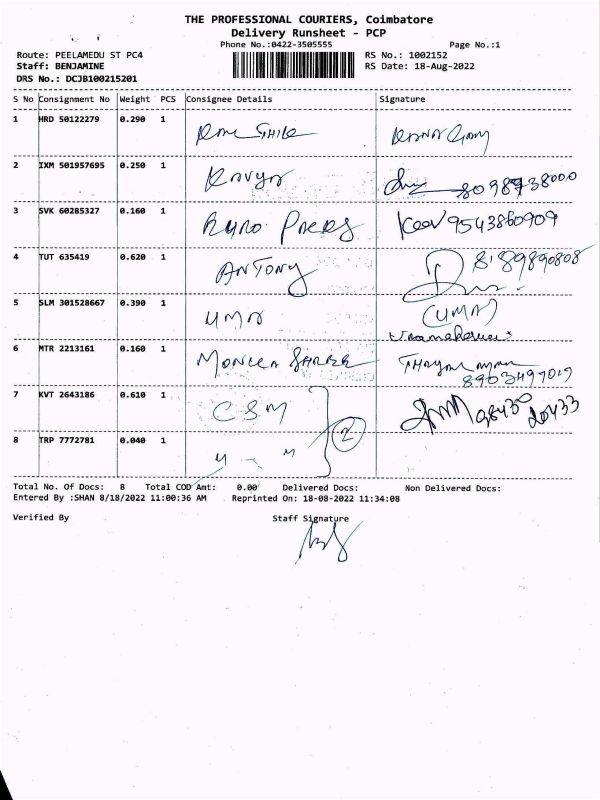 THE PROFESSIONAL COURIERS, Coimbatore
Delivery Runsheet - PCP
Phone No.:0422-3505555
Page No.:1
Route: PEELAMEDU ST PC4
RS No.: 1002152
Staff: BENJAMINE
RS Date: 18-Aug-2022
DRS No.: DCJB100215201
S No Consignment No Weight PCS Consignee Details Signature
1 HRD 50122279 0.290 1
2 IXM 501957695 0.250 1 Kavya 8098938000
3 SVK 60285327 0.160 1 9543860909
4 TUT 635419 0.620 1 ANTONY 8189890808
5 SLM 301528667 0.390 1 UMA (UMA)
6 MTR 2213161 0.160 1 8903497019
7 KVT 2643186 0.610 1 CSM 98430 20433
8 TRP 7772781 0.040 1 2
Total No. Of Docs: 8 Total COD Amt: 0.00 Delivered Docs: Non Delivered Docs:
Entered By :SHAN 8/18/2022 11:00:36 AM Reprinted On: 18-08-2022 11:34:08
Verified By Staff Signature